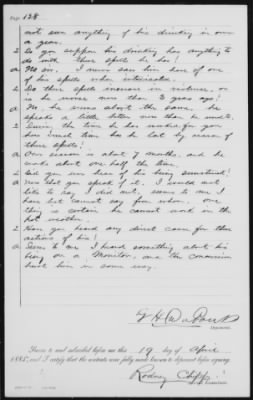 Page 128
not seen anything of his drinking in over
a year.
Q Do you suppose his drinking has anything to
do with these spells he has?
A No sir. I never saw him have of one
of his spells when intoxicated.
Q Do these spells increase in violence, or
is he worse now than 3 years ago?
A No, he seems about the same. He
speaks a little better now than he used to.
Q During the time he has worked for you
how much time has he lost by reason of
these spells?
A Our season is about 7 months, and he
works about one half the time.
Q Did you ever hear of his being sunstruck?
A Now that you speak of it, I would not
like to say I did not, seems to me I
have but cannot say from whom. One
thing is certain he cannot work in the
hot weather.
Q Have you heard any direct cause for these
actions of his?
A Seems to me I heard something about his
being on a Monitor, and the concussion
hurt him in some way.
Deponent.
Sworn to and subscribed before me this 19 day of April
1885, and I certify that the contents were fully made known to deponent before signing.
Rodney